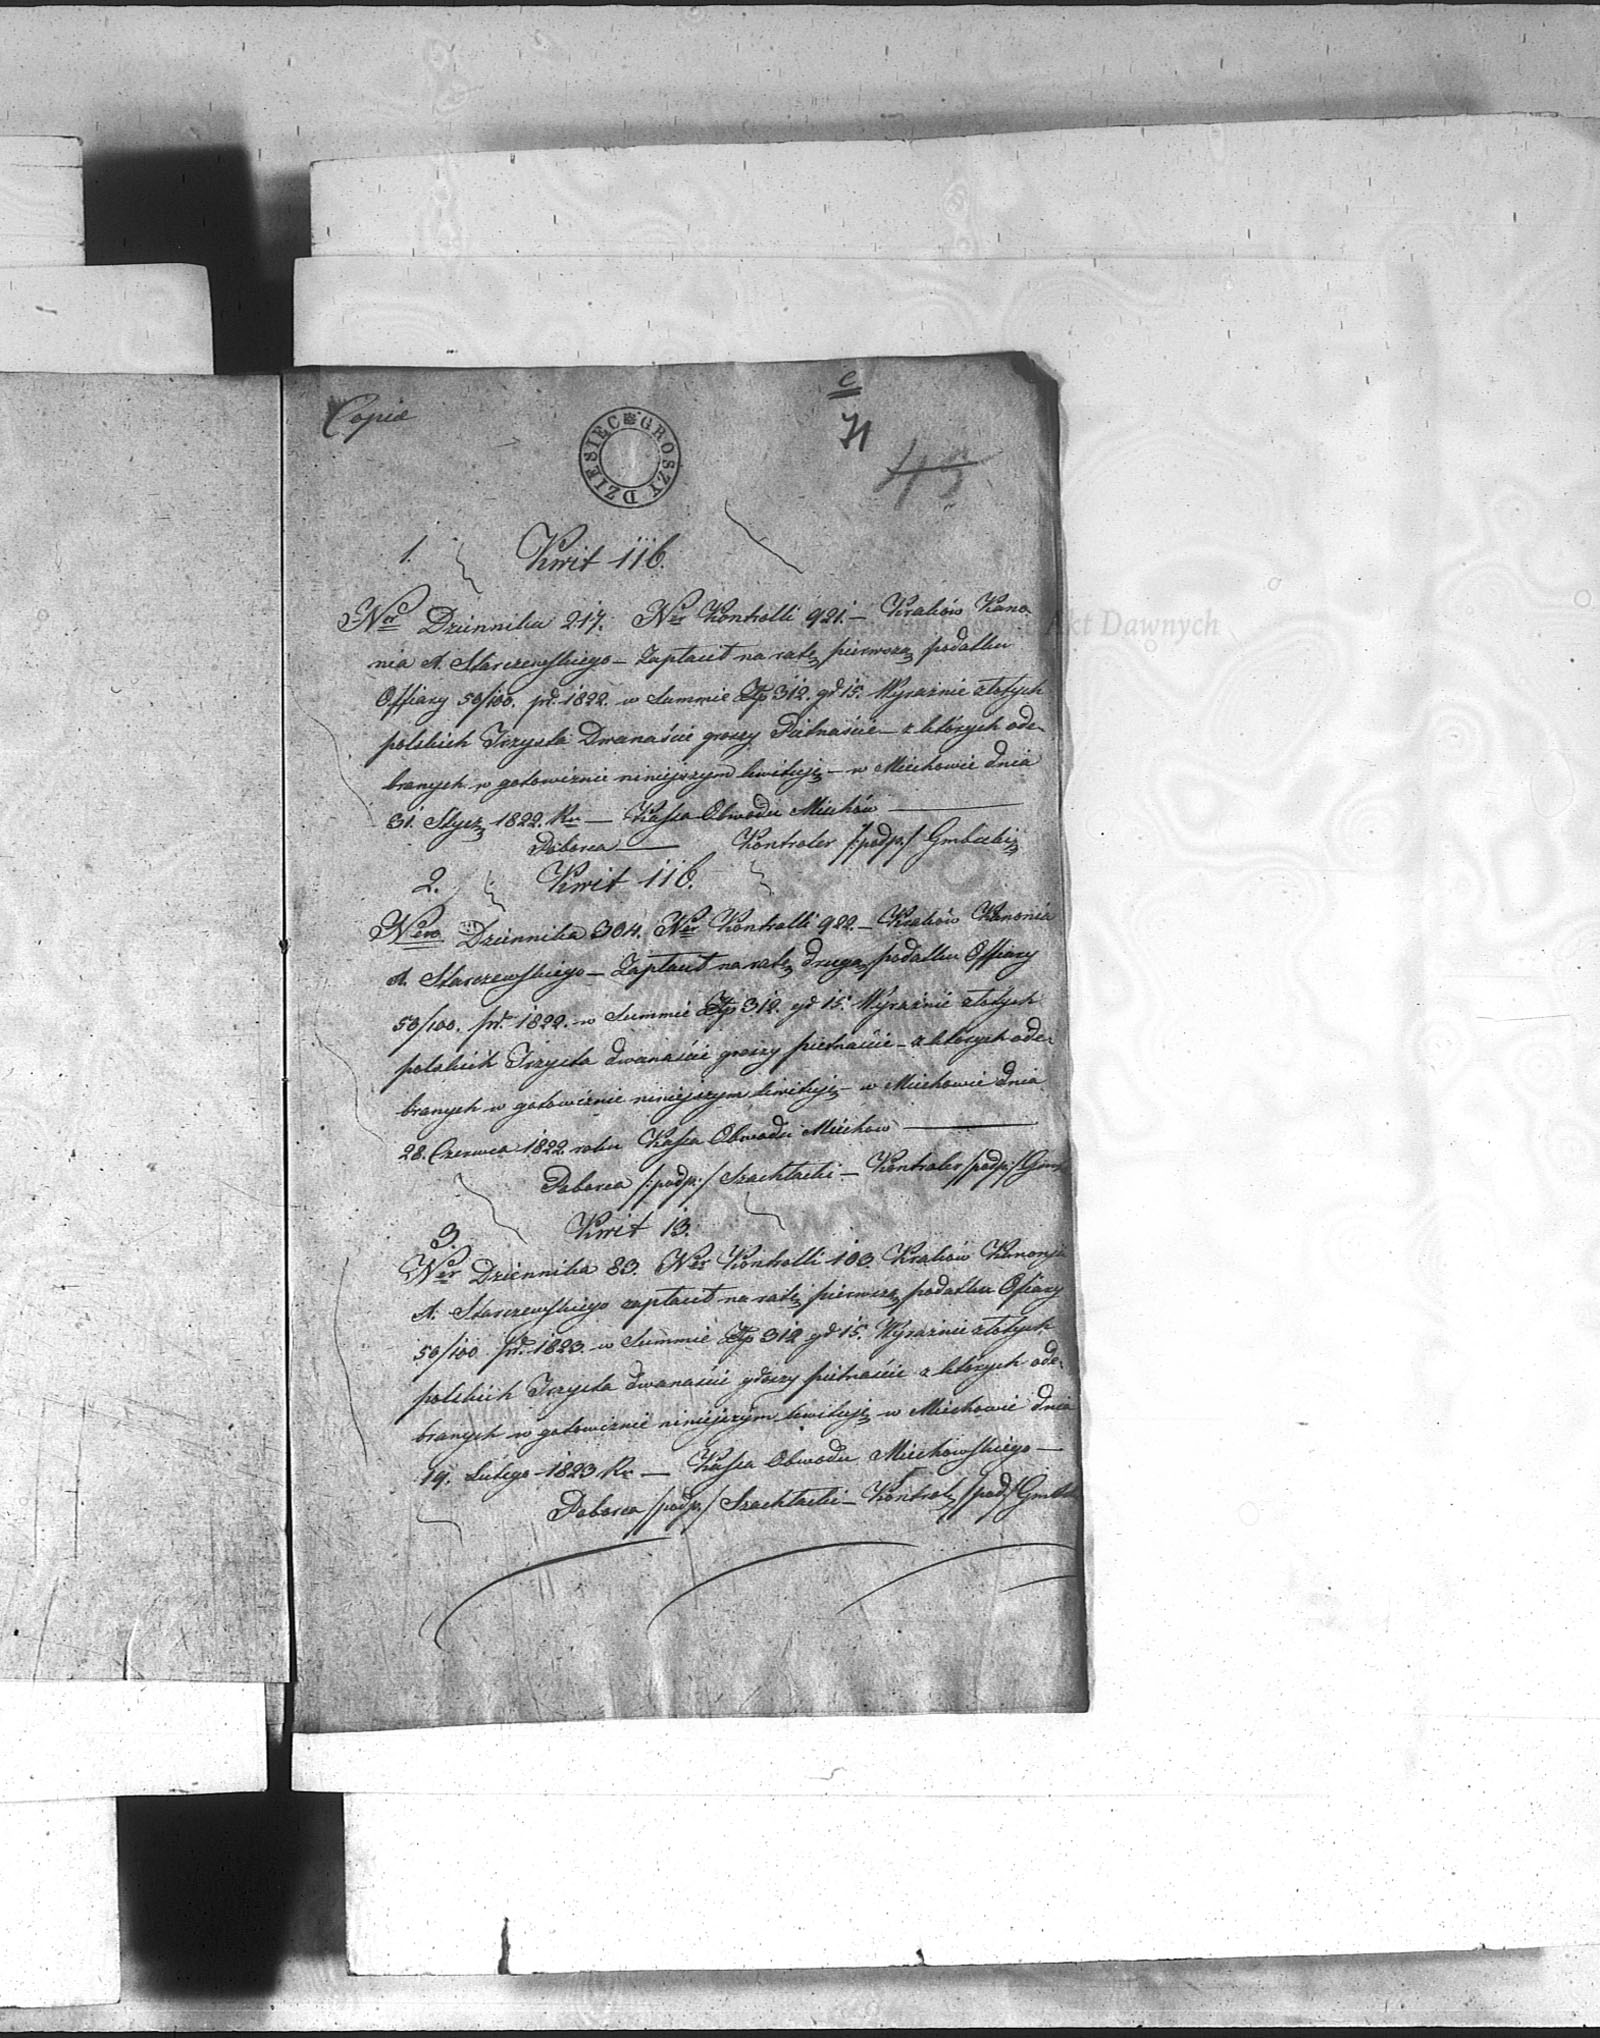 Copia
DZIESIĘC GROSZY
c
71
43
1. Kwit 116.
Ner Dziennika 217. Ner Kontrolli 921. – Kraków Kano
nia A. Starczewskiego – Zapłacił na ratę pierwszą podatku
Offiary 50/100. pr. 1822. w Summie Złp 312. gr 15. Wyraźnie złotych
polskich Trzysta Dwanaście groszy Pietnaście – z których ode-
branych w gotowiznie niniejszym kwituję – w Miechowie dnia
31. Stycz. 1822. Ru – Kassa Obwodu Miechów
Poborca — Kontroler /:podp:/
2. Kwit 116.
Nero Dziennika 304. Ner Kontrolli 922. – Kraków Kanonia
A. Starczewskiego – Zapłacił na ratę drugą podatku Offiary
50/100. pr. 1822. w Summie Złp 312. gr 15. Wyraźnie złotych
polskich Trzysta dwanaście groszy pietnaście – z których ode-
branych w gotowiznie niniejszym kwituję – w Miechowie dnia
28. Czerwca 1822 roku Kassa Obwodu Miechow
Poborca /:podp:/ Szachłacki – Kontroler /podp:/
3. Kwit 13.
Ner Dziennika 83. Ner Kontrolli 103 Kraków Kanonja
A. Starczewskiego zapłacił na ratę pierwszą podatku Ofiary
50/100 pr. 1823. w Summie Złp 312 gr 15. Wyraźnie złotych
polskich Trzysta dwanaście groszy pietnaście z których ode-
branych w gotowiznie niniejszym kwituję w Miechowie dnia
19. Lutego 1823 Ru – Kassa Obwodu Miechowskiego –
Poborca /podp:/ Szachłacki – Kontrol. /pod:/
Akt Dawnych